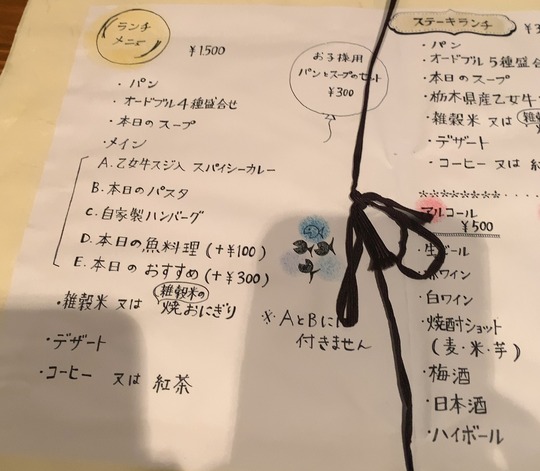 ランチ
メニュー
¥1,500
・パン
・オードブル4種盛合せ
・本日のスープ
・メイン
A.乙女牛スジ入 スパイシーカレー
B.本日のパスタ
C.自家製ハンバーグ
D.本日の魚料理(+¥100)
E.本日の おすすめ(+¥300)
・雑穀米 又は 雑穀米の焼おにぎり
※AとBに
付きません
・デザート
・コーヒー 又は 紅茶
お子様用
パンとスープのセット
¥300
ステーキランチ
・パン
・オードブル5種盛合
・本日のスープ
・栃木県産乙女牛
・雑穀米 又は
・デザート
・コーヒー 又は 紅
アルコール
¥500
・生ビール
ワイン
・白ワイン
・焼酎ショット
(麦・米・芋)
・梅酒
・日本酒
・ハイボール